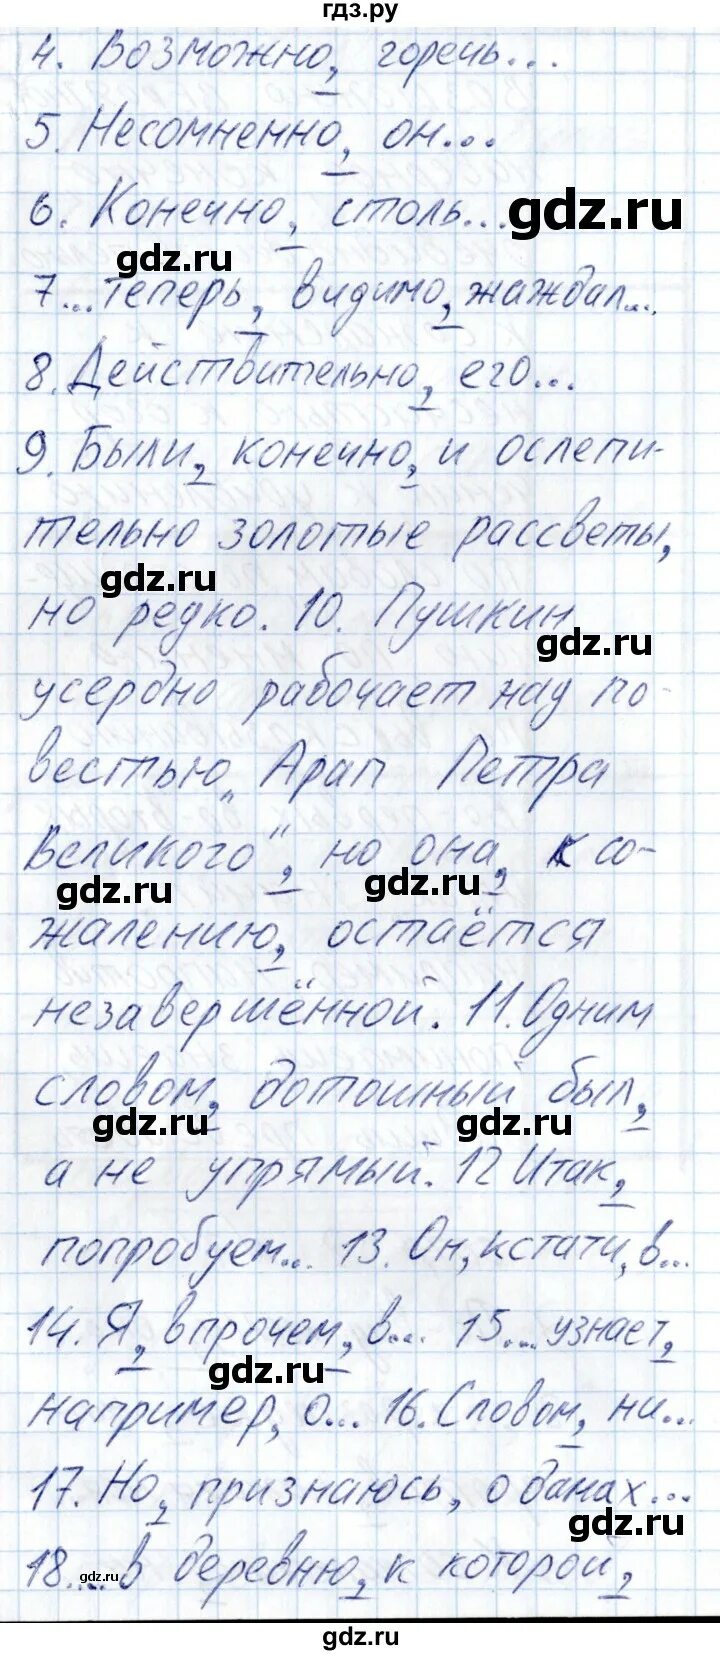 гдз.ру
4. Возможно, горечь...
5. Несомненно, он...
gdz.ru
6. Конечно, столь...
gdz.ru
7...теперь, видимо, жаждал...
8. Действительно, его...
9. Были, конечно, и ослепи-
тельно золотые рассветы,
gdz.ru
но редко. 10. Пушкин
gdz.ru
усердно рабочает над по-
вестью „Арап Петра
Великого", но она, к со-
gdz.ru gdz.ru
жалению, остаётся
незавершённой. 11. Одним
словом, дотошный был,
gdz.ru gdz.ru
а не упрямый. 12 Итак,
попробуем... 13. Он, кстати, в...
14. Я, впрочем, в... 15... узнает,
gdz.ru
например, о... 16. Словом, ни...
17. Но, признаюсь, о данах...
gdz.ru
18.... в деревню, к которой,
gdz.ru
gdz.ru